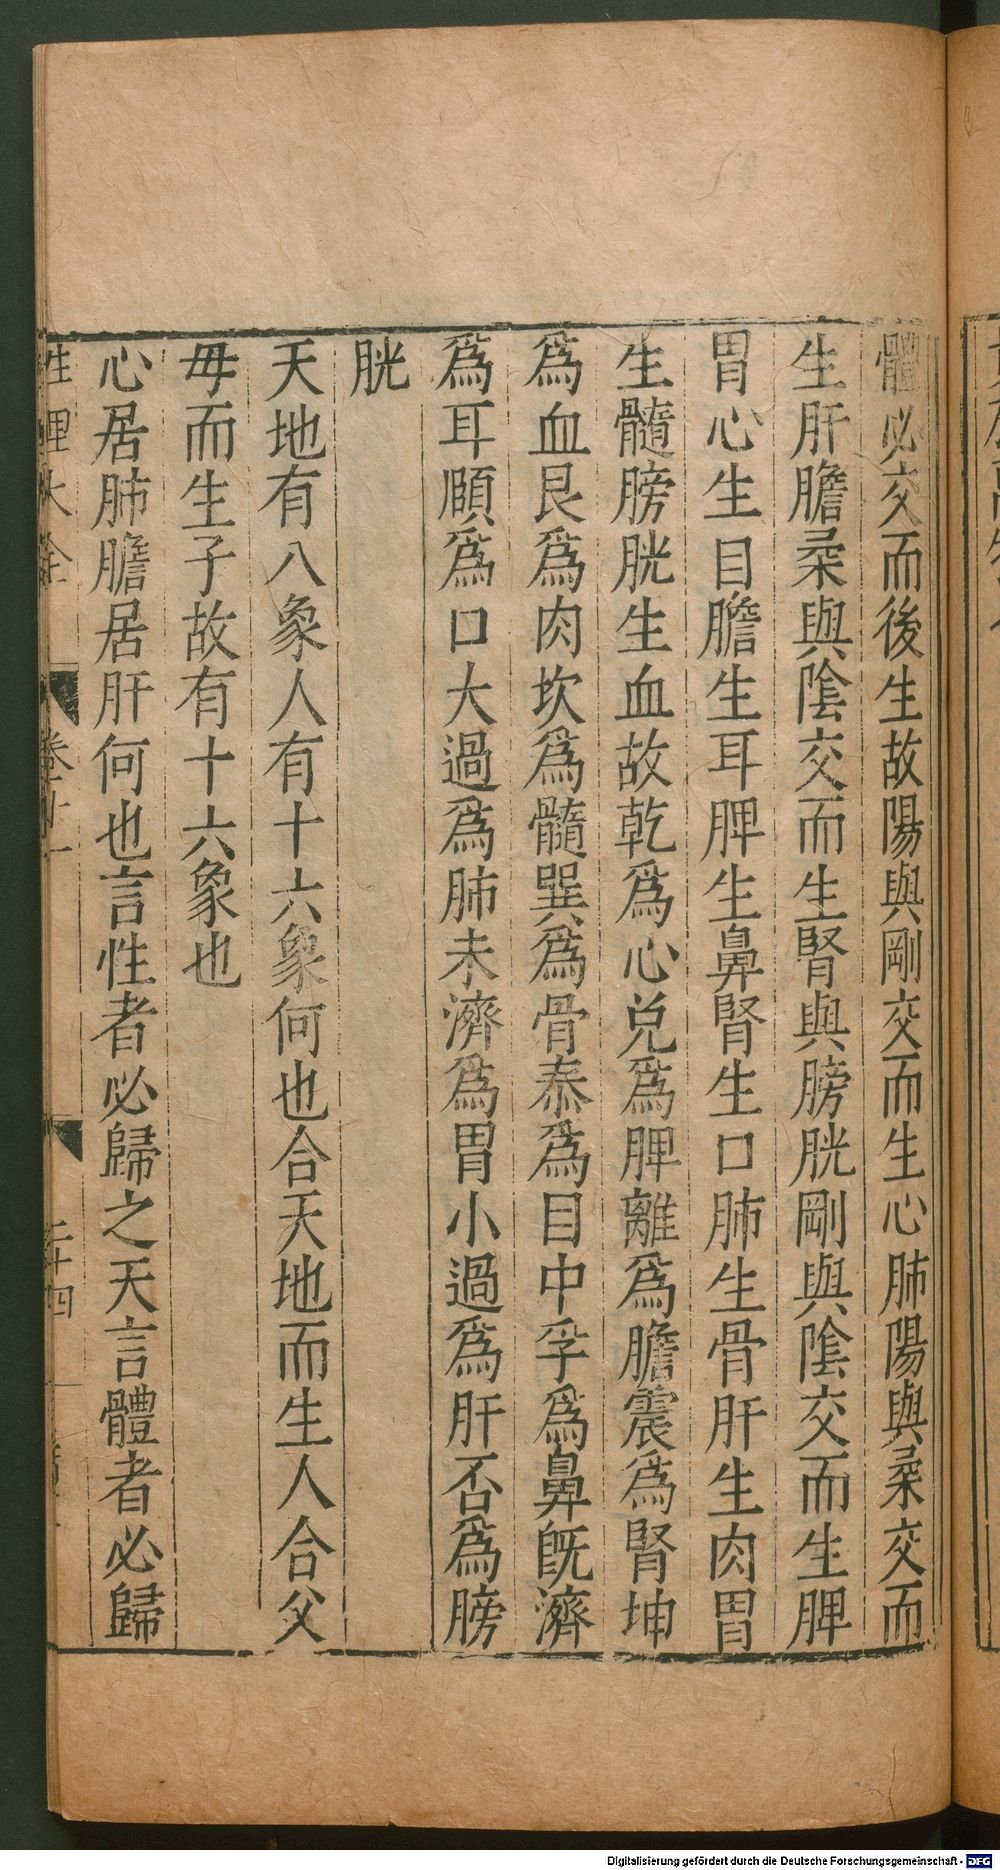 體必交而後生故陽與剛交而生心肺陽與柔交而
生肝膽柔與陰交而生腎與膀胱剛與陰交而生脾
胃心生目膽生耳脾生鼻腎生口肺生骨肝生肉胃
生髓膀胱生血故乾爲心兌爲脾離爲膽震爲腎坤
爲血艮爲肉坎爲髓巽爲骨泰爲目中孚爲鼻旣濟
爲耳頤爲口大過爲肺未濟爲胃小過爲肝否爲膀
胱
天地有八象人有十六象何也合天地而生人合父
母而生子故有十六象也
心居肺膽居肝何也言性者必歸之天言體者必歸
性理大全 卷十一 二十四
Digitalisierung gefördert durch die Deutsche Forschungsgemeinschaft - DFG